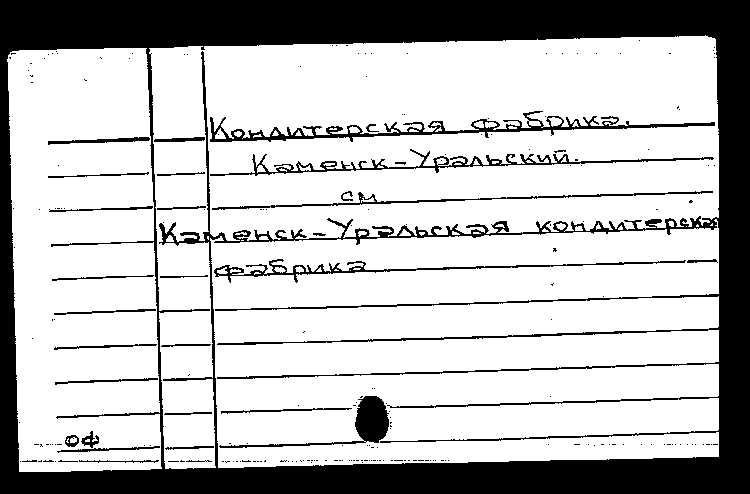 Кондитерская фабрика.
Каменск-Уральский.
см
Каменск-Уральская кондитерская
фабрика
оф